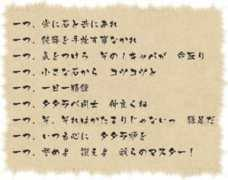 一つ、常に石と共にあれ
一つ、鍛錬を手放す事なかれ
一つ、気をつけろ その1きゃべが 命取り
一つ、小さな石から コツコツと
一つ、一日一精錬
一つ、タタラベ術士 侍立くね
一つ、ぞ、それはかたまりじゃないっ 鉄是だ
一つ、いつも心に タタラ場を
一つ、崇めよ 讃えよ 我らのマスター!